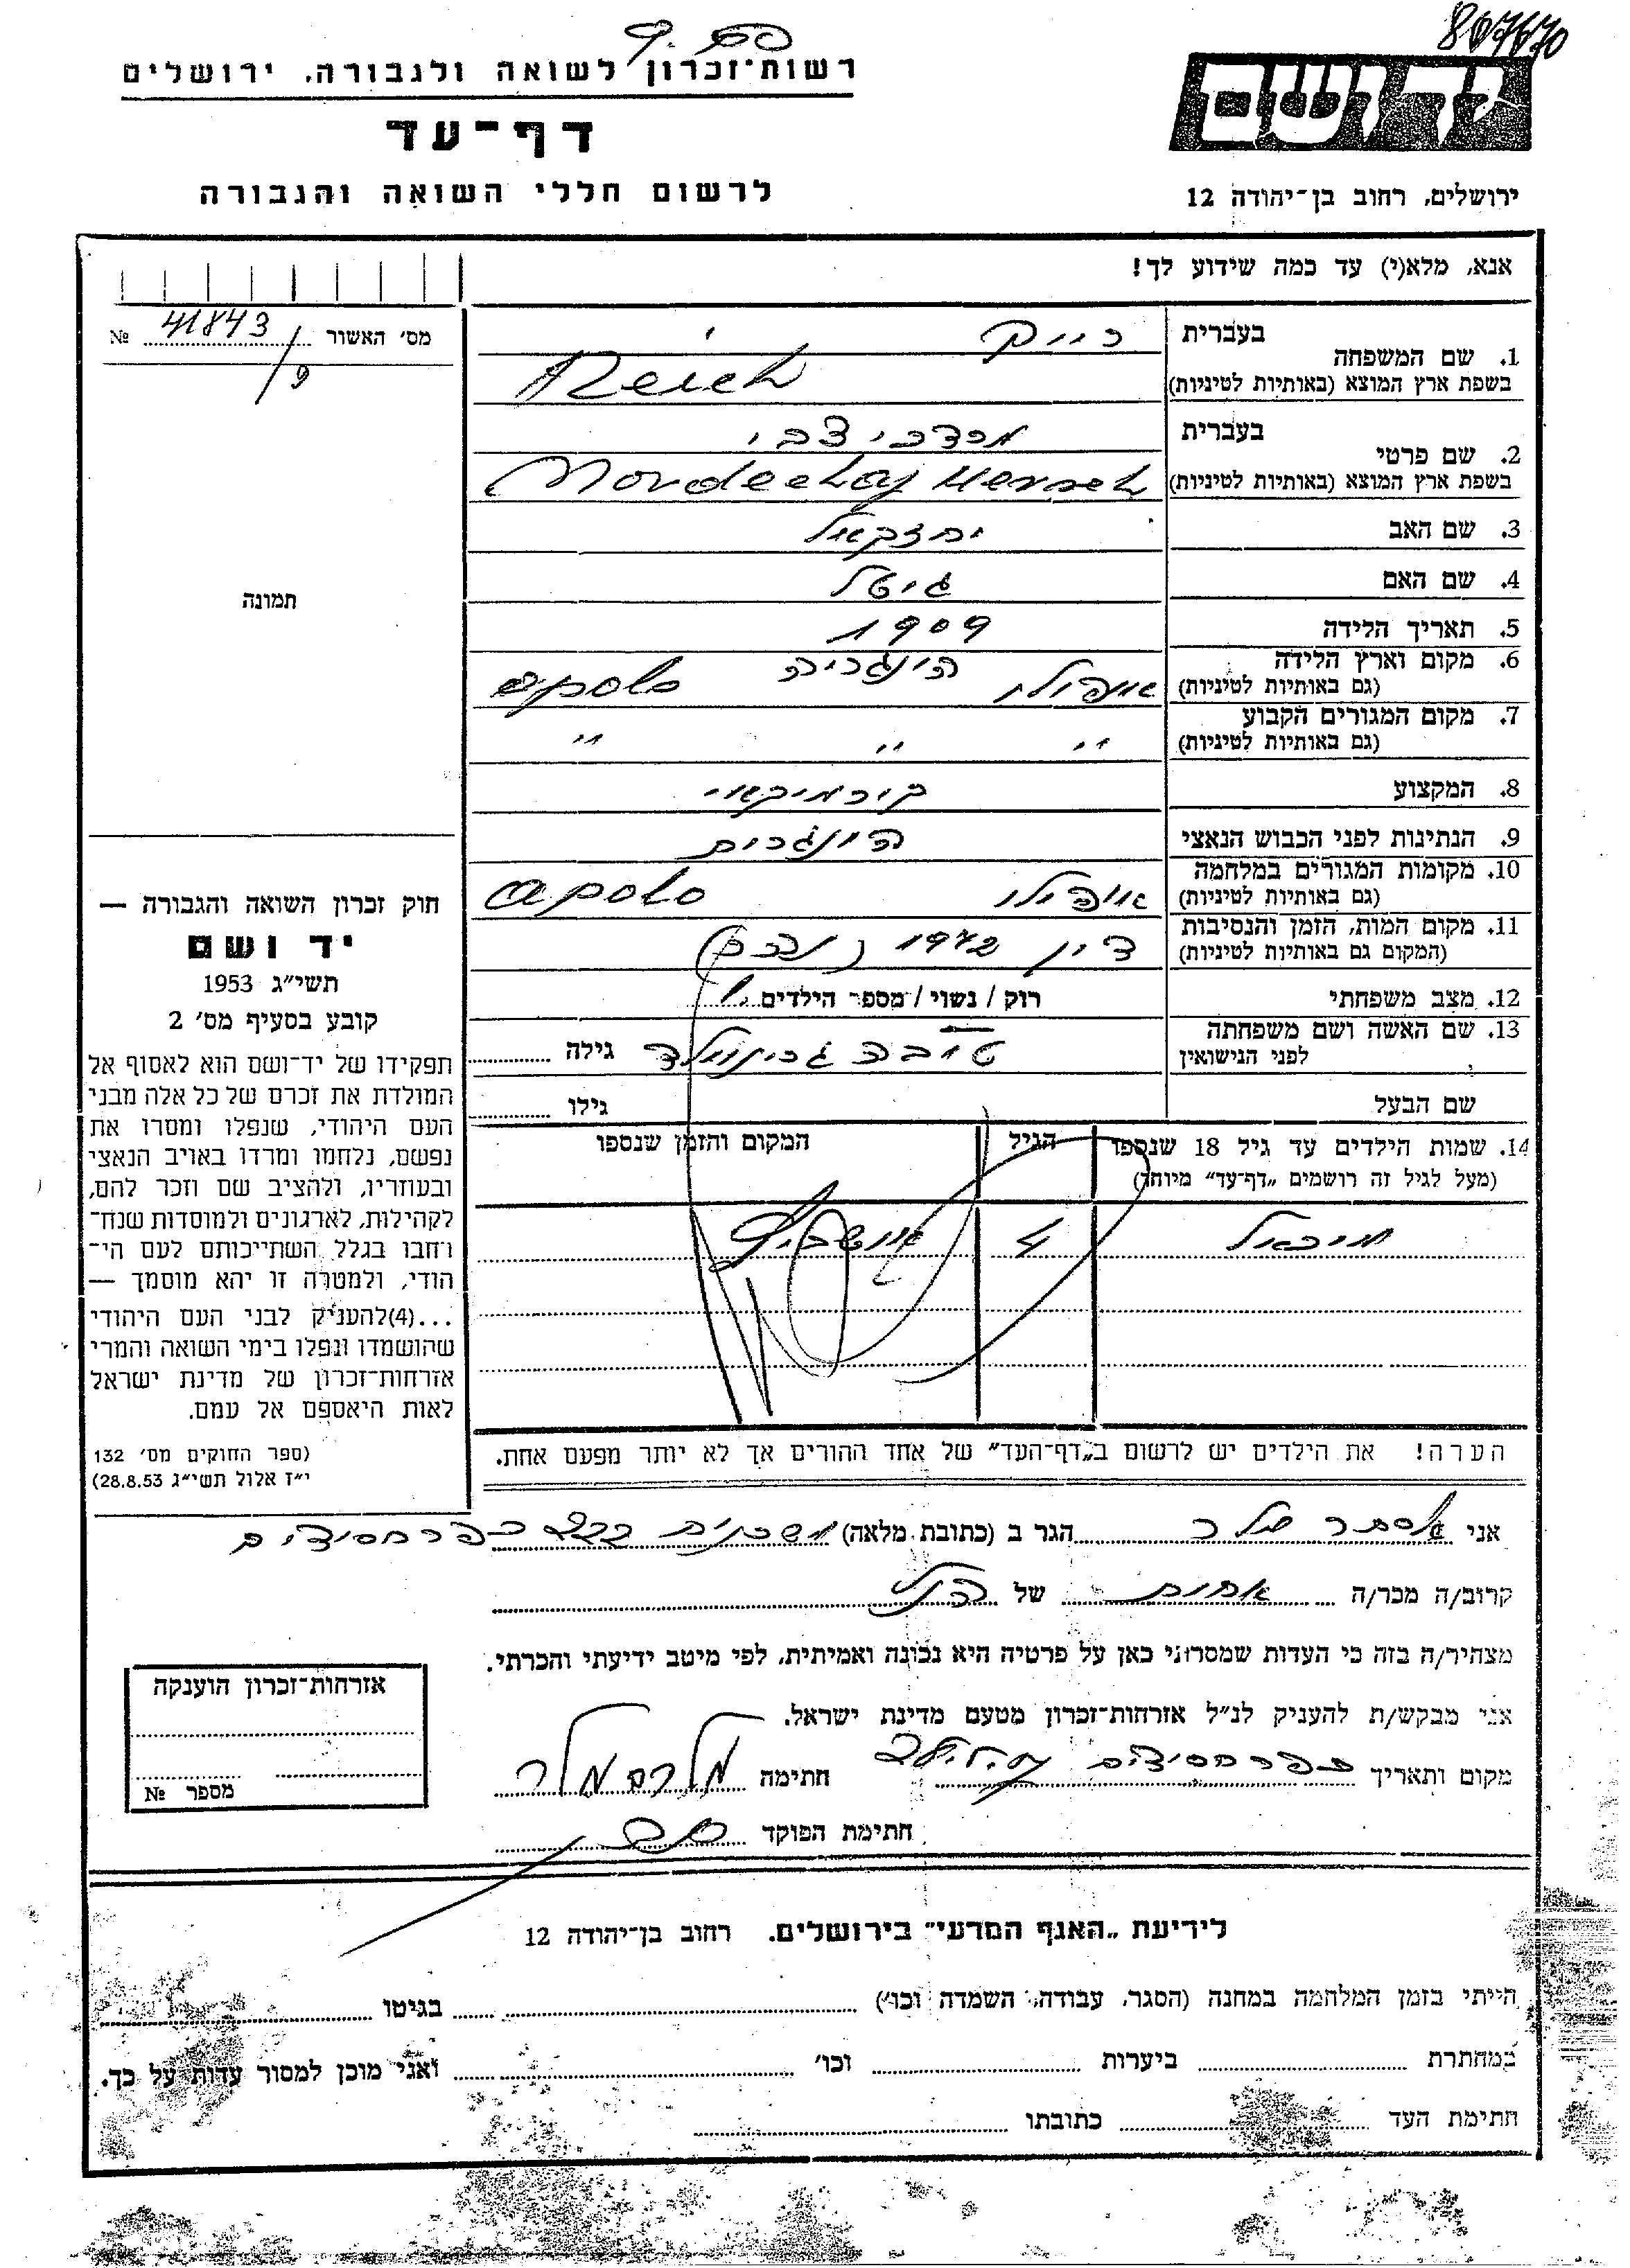 807670
רשות־זכרון לשואה ולגבורה. ירושלים
דף־עד
לרשום חללי השואה והגבורה
יד ושם
ירושלים, רחוב בן־יהודה 12
אנא, מלא(י) עד כמה שידוע לך!
מס׳ האשור 41843 №
9
תמונה
חוק זכרון השואה והגבורה —
יד ושם
תשי״ג 1953
קובע בסעיף מס׳ 2
תפקידו של יד־ושם הוא לאסוף אל
המולדת את זכרם של כל אלה מבני
העם היהודי, שנפלו ומסרו את
נפשם, נלחמו ומרדו באויב הנאצי
ובעוזריו, ולהציב שם וזכר להם,
לקהילות, לארגונים ולמוסדות שנח־
רחבו בגלל השתייכותם לעם הי־
הודי, ולמטרה זו יהא מוסמך —
...(4)להעניק לבני העם היהודי
שהושמדו ונפלו בימי השואה והמרי
אזרחות־זכרון של מדינת ישראל
לאות היאספם אל עמם.
(ספר החוקים מס׳ 132
י״ז אלול תשי״ג 28.8.53)
בעברית רייך
1. שם המשפחה
בשפת ארץ המוצא (באותיות לטיניות) Reich
בעברית מרדכי צבי
2. שם פרטי
בשפת ארץ המוצא (באותיות לטיניות) Mordechaj Hersch
3. שם האב יחזקאל
4. שם האם גיטל
5. תאריך הלידה 1909
6. מקום וארץ הלידה
(גם באותיות לטיניות) אופולו הונגריה apolo
7. מקום המגורים הקבוע
(גם באותיות לטיניות) " " "
8. המקצוע
9. הנתינות לפני הכבוש הנאצי הונגרית
10. מקומות המגורים במלחמה
(גם באותיות לטיניות) אופולו apolo
11. מקום המות, הזמן והנסיבות
(המקום גם באותיות לטיניות) דון 1942
12. מצב משפחתי רוק / נשוי / מספר הילדים 1
13. שם האשה ושם משפחתה
לפני הנישואין טובה גרינולד גילה
שם הבעל גילו
14. שמות הילדים עד גיל 18 שנספו הגיל המקום והזמן שנספו
(מעל לגיל זה רושמים „דף־עד״ מיוחד)
מיכאל 4 אושביץ
הערה! את הילדים יש לרשום ב„דף־העד״ של אחד ההורים אך לא יותר מפעם אחת.
אני אסתר מלר הגר ב (כתובת מלאה) שכנים 222 כפר חסידים
קרוב/ה מכר/ה אחות של הנ״ל
מצהיר/ה בזה כי העדות שמסרתי כאן על פרטיה היא נכונה ואמיתית, לפי מיטב ידיעתי והכרתי.
אני מבקש/ת להעניק לנ״ל אזרחות־זכרון מטעם מדינת ישראל.
מקום ותאריך כפר חסידים חתימה
חתימת הפוקד
אזרחות־זכרון הוענקה
מספר №
לידיעת „האגף המדעי״ בירושלים. רחוב בן־יהודה 12
הייתי בזמן המלחמה במחנה (הסגר, עבודה, השמדה וכו׳) בגיטו
במחתרת ביערות וכו׳ ואני מוכן למסור עדות על כך.
חתימת העד כתובתו